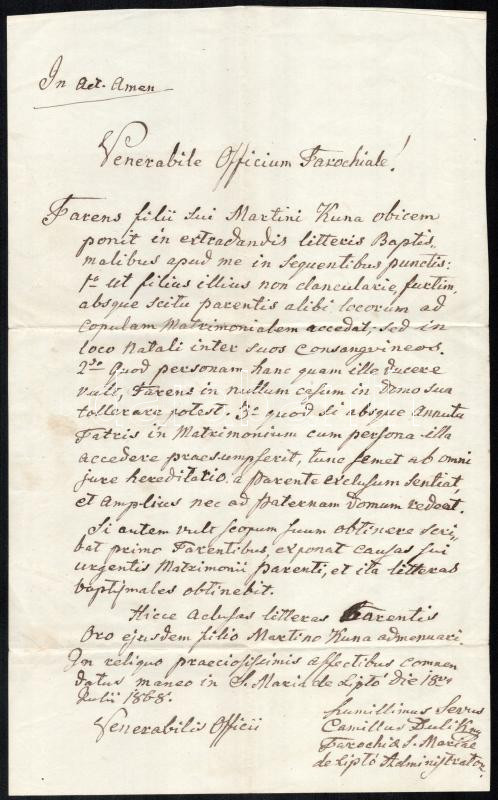 In act. Amen
Venerabile Officium Parochiale!
Parens filii sui Martini Kuna obicem
ponit in extradandis litteris Baptis,,
malibus apud me in sequentibus punctis:
1o ut filius illius non clancularie, furtim,
absque scitu parentis alibi locorum ad
copulam Matrimonialem accedat, sed in
loco Natali inter suos Consangvineos.
2do Quod personam hanc quam ille ducere
vult, Parens in nullum casum in domo sua
tollerare potest. 3o quod si absque annutu
Patris in Matrimonium cum persona illa
accedere praesumpserit, tunc semet ab omni
jure hereditatio a parente exclusum sentiat,
et amplius nec ad paternam domum redeat.
Si autem vult scopum suum obtinere scri,,
bat primo Parentibus, exponat causas sui
urgentis Matrimonii parenti, et ita litteras
baptismales obtinebit.
Hicce aclusas litteras Parentis
Oro ejusdem filio Martino Kuna admanuari
In reliquo praeciosissimis affectibus commen
datus maneo in S. Maria de Liptó die 18va
Julii 1868.
humillimus Servus
Venerabilis Officii
Camillus
Parochiae S. Mariae
de Liptó Administrator.